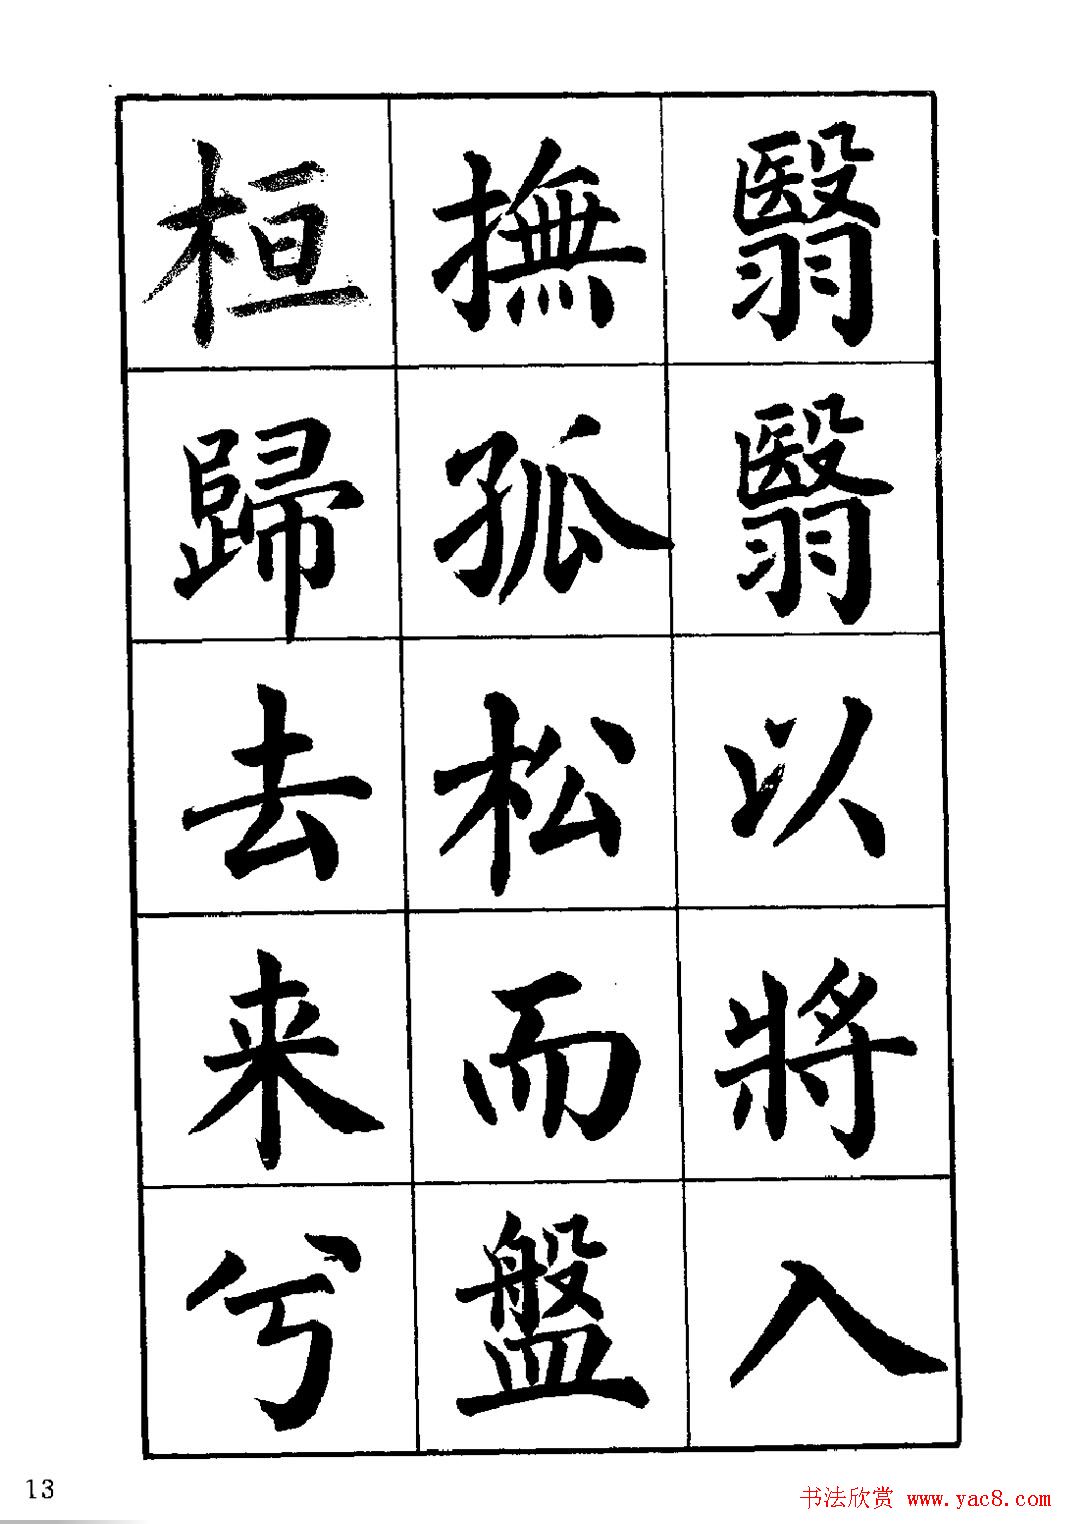 翳翳以將入
撫孤松而盤
桓歸去来兮
13
书法欣赏 www.yac8.com